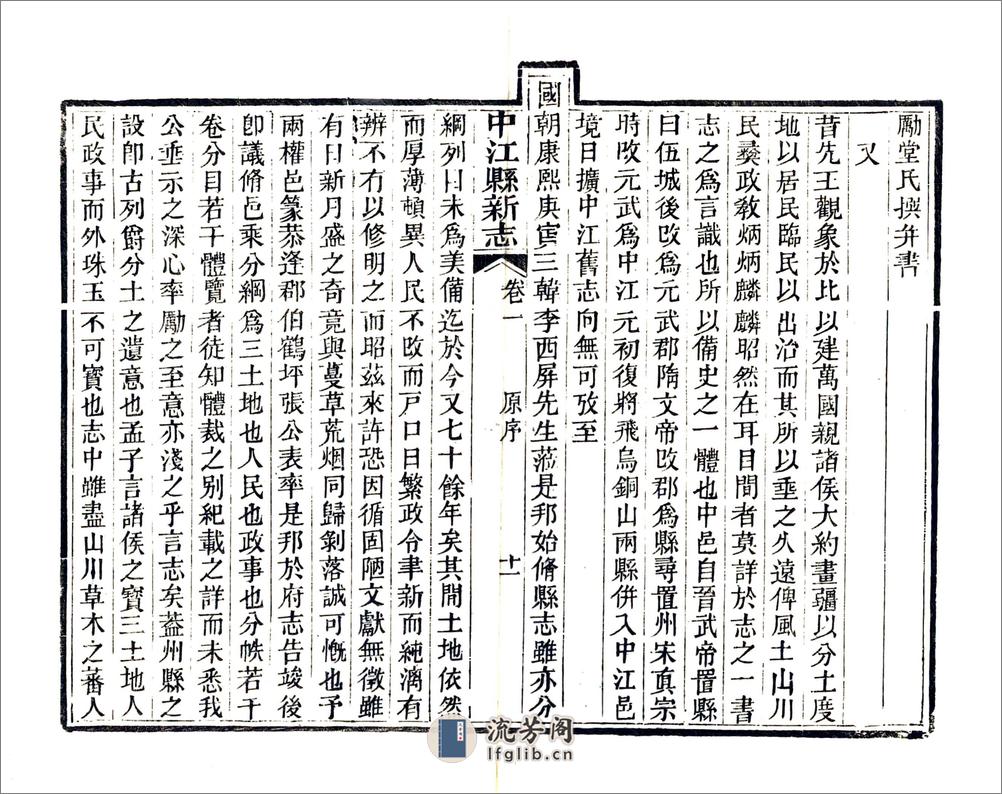 勵堂氏撰并書
又
昔先王觀象於比以建萬國親諸侯大約畫疆以分土度
地以居民臨民以出治而其所以垂之久遠俾風土山川
民彝政敎炳炳麟麟昭然在耳目間者莫詳於志之一書
志之爲言識也所以備史之一體也中邑自晉武帝置縣
曰伍城後改爲元武郡隋文帝改郡爲縣尋置州宋眞宗
時改元武爲中江元初復將飛烏銅山兩縣併入中江邑
境日擴中江舊志向無可攷至
國朝康熙庚寅三韓李西屏先生蒞是邦始脩縣志雖亦分
中江縣新志 卷一 原序 十一
綱列目未爲美備迄於今又七十餘年矣其間土地依然
而厚薄頓異人民不改而戸口日繁政令聿新而純漓有
辨不有以修明之而昭茲來許恐因循固陋文獻無徵雖
有日新月盛之奇竟與蔓草荒烟同歸剝落誠可慨也予
兩權邑篆恭逢郡伯鶴坪張公表率是邦於府志告竣後
卽議脩邑乘分綱爲三土地也人民也政事也分帙若干
卷分目若干體覽者徒知體裁之別紀載之詳而未悉我
公垂示之深心率勵之至意亦淺之乎言志矣葢州縣之
設卽古列爵分土之遺意也孟子言諸侯之寶三土地人
民政事而外珠玉不可寶也志中雖盡山川草木之蕃人
流芳阁
lfglib.cn